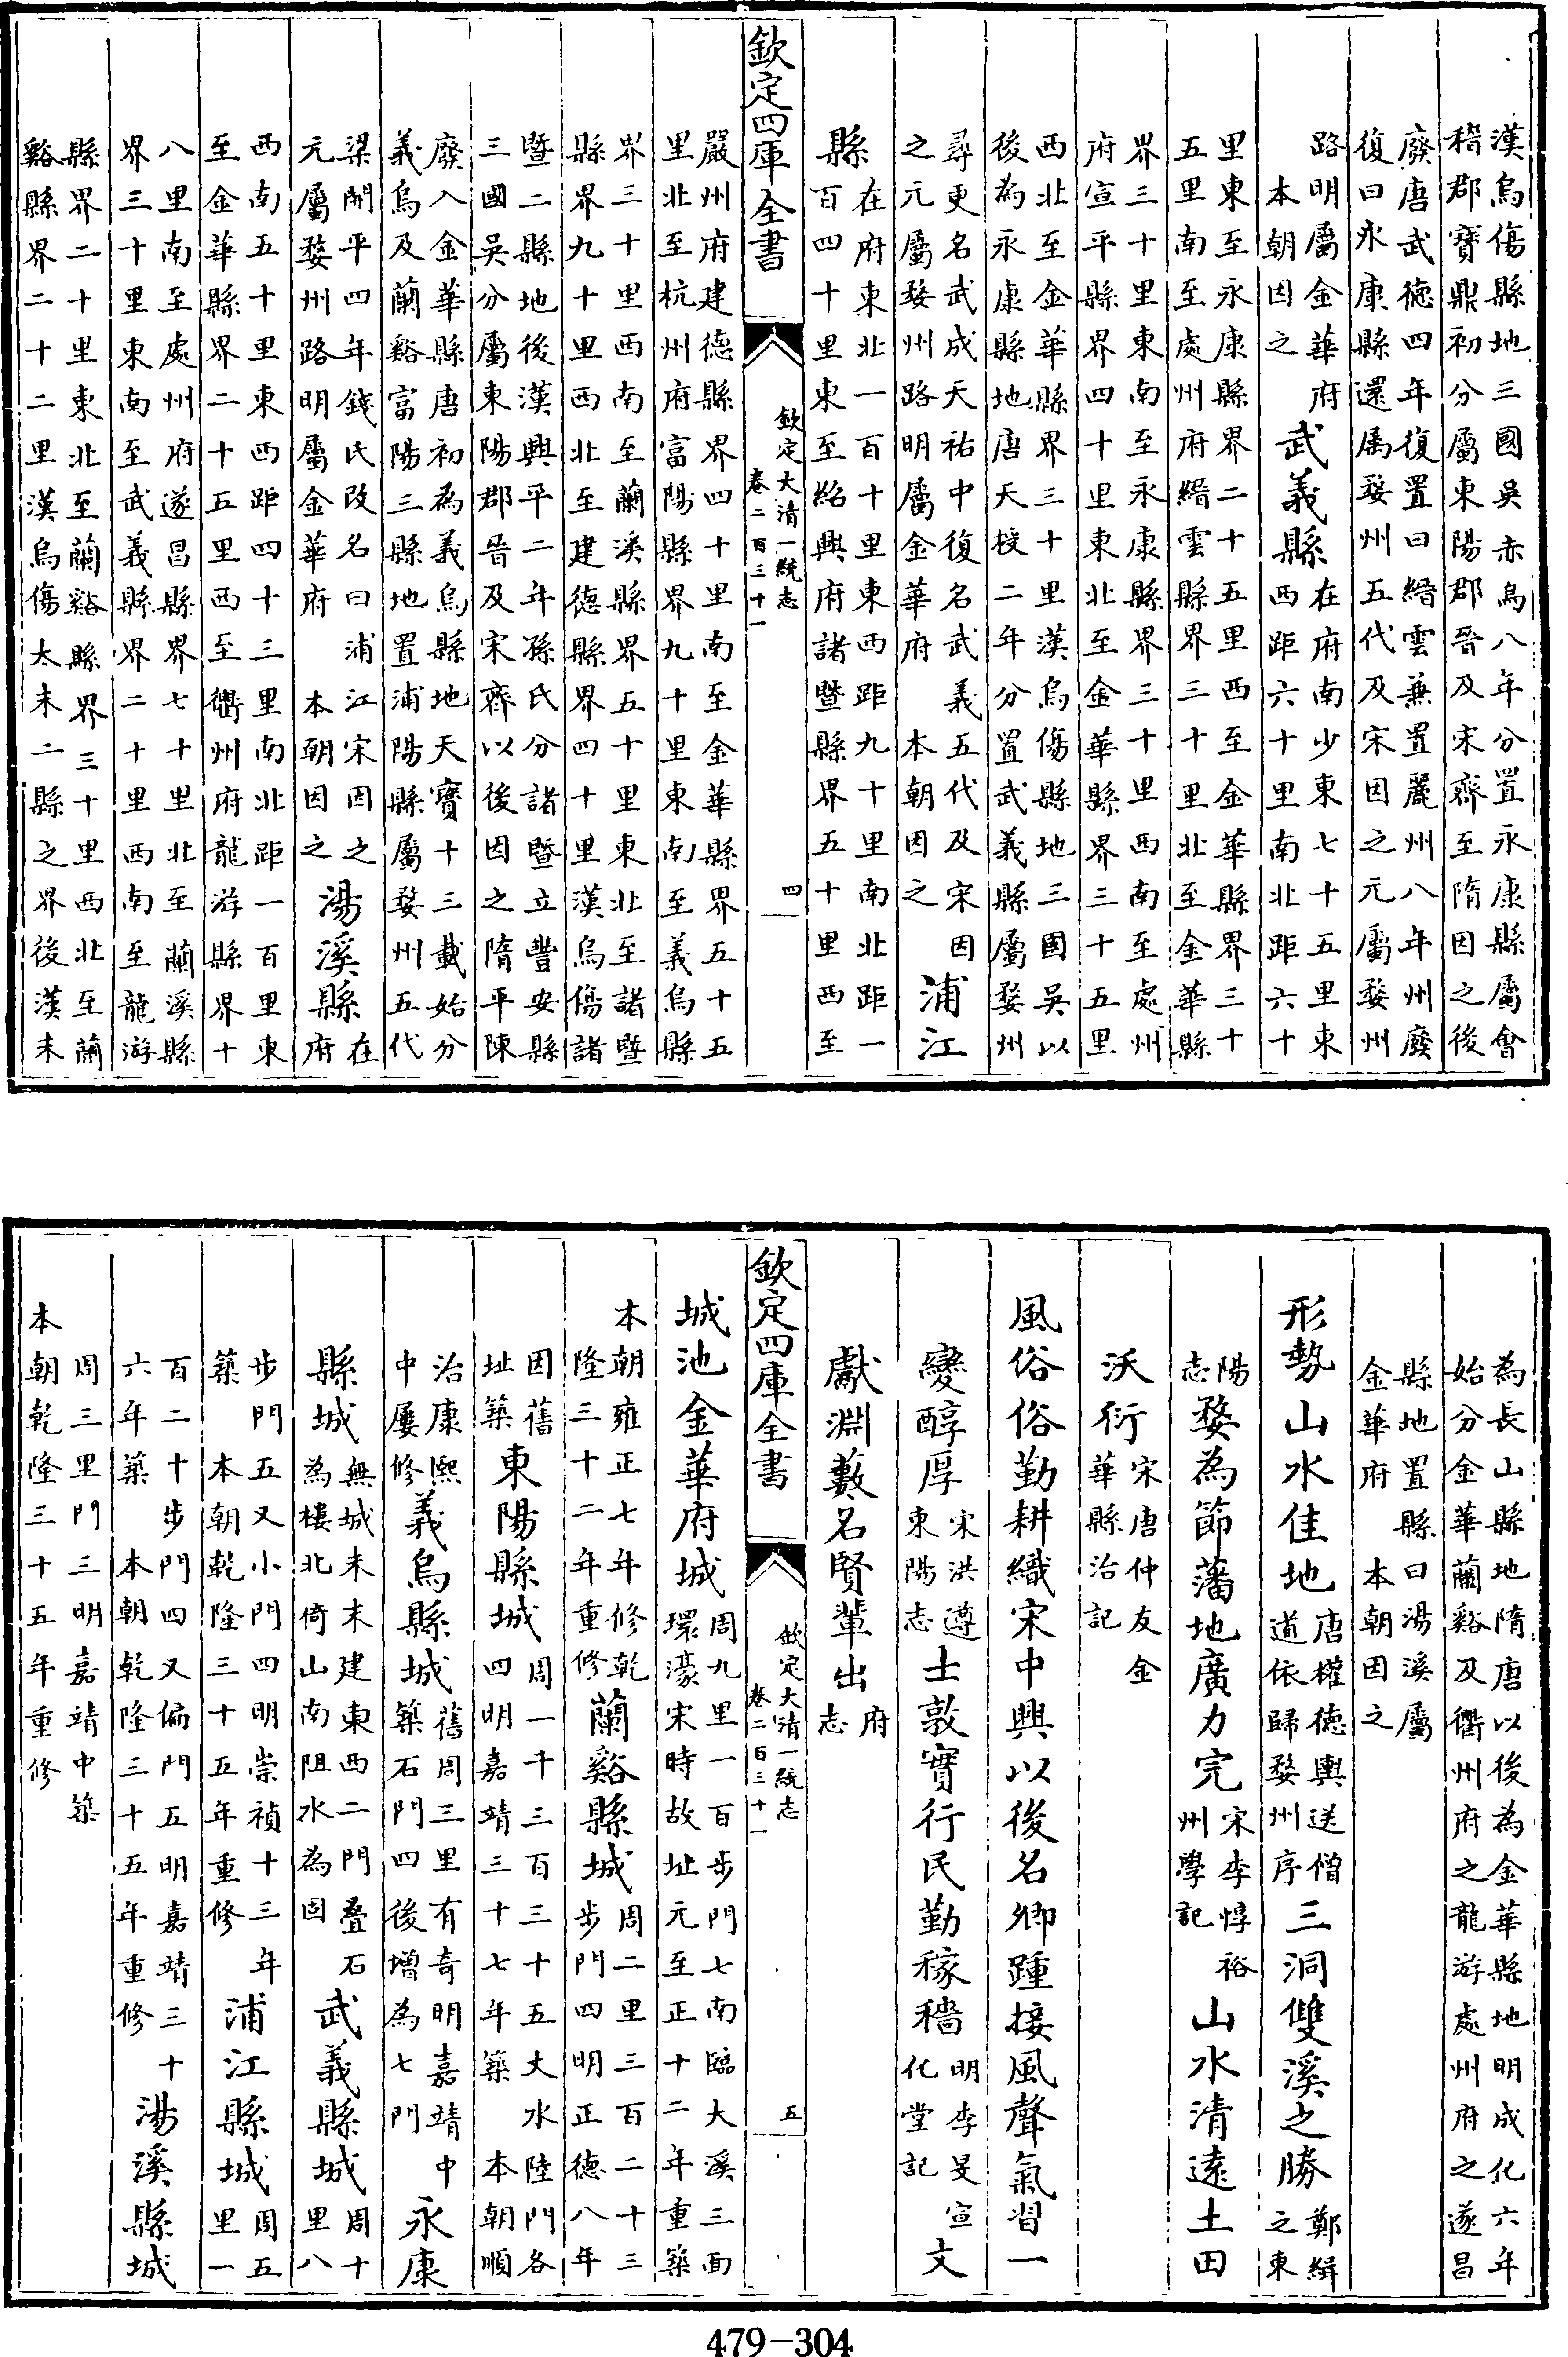 漢烏傷縣地三國吳赤烏八年分置永康縣屬會
稽郡寶鼎初分屬東陽郡晉及宋齊至隋因之後
廢唐武德四年復置曰縉雲兼置麗州八年州廢
復曰永康縣還屬婺州五代及宋因之元屬婺州
路明屬金華府
本朝因之
武義縣
在府南少東七十五里東
西距六十里南北距六十
里東至永康縣界二十五里西至金華縣界三十
五里南至處州府縉雲縣界三十里北至金華縣
界三十里東南至永康縣界三十里西南至處州
府宣平縣界四十里東北至金華縣界三十五里
西北至金華縣界三十里漢烏傷縣地三國吳以
後為永康縣地唐天校二年分置武義縣屬婺州
尋更名武成天祐中復名武義五代及宋因
之元屬婺州路明屬金華府 本朝因之
浦江
縣
在府東北一百十里東西距九十里南北距一
百四十里東至紹興府諸暨縣界五十里西至
欽定四庫全書
欽定大清一統志
卷二百三十一
四
嚴州府建德縣界四十里南至金華縣界五十五
里北至杭州府富陽縣界九十里東南至義烏縣
界三十里西南至蘭溪縣界五十里東北至諸暨
縣界九十里西北至建德縣界四十里漢烏傷諸
暨二縣地後漢興平二年孫氏分諸暨立豐安縣
三國吳分屬東陽郡晉及宋齊以後因之隋平陳
廢入金華縣唐初為義烏縣地天寶十三載始分
義烏及蘭谿富陽三縣地置浦陽縣屬婺州五代
梁開平四年錢氏改名曰浦江宋因之
元屬婺州路明屬金華府 本朝因之
湯溪縣
在
府
西南五十里東西距四十三里南北距一百里東
至金華縣界二十五里西至衢州府龍游縣界十
八里南至處州府遂昌縣界七十里北至蘭溪縣
界三十里東南至武義縣界二十里西南至龍游
縣界二十里東北至蘭谿縣界三十里西北至蘭
谿縣界二十二里漢烏傷太末二縣之界後漢末
為長山縣地隋唐以後為金華縣地明成化六年
始分金華蘭谿及衢州府之龍游處州府之遂昌
縣地置縣曰湯溪屬
金華府 本朝因之
形勢山水佳地
唐權德輿送僧
道依歸婺州序
三洞雙溪之勝
鄭緝
之東
陽
志
婺為節藩地廣力完
宋李惇裕
州學記
山水清遠土田
沃衍
宋唐仲友金
華縣治記
風俗俗勤耕織宋中興以後名卿踵接風聲氣習一
變醇厚
宋洪遵
東陽志
士敦實行民勤稼穡
明李旻宣
化堂記
文
獻淵藪名賢輩出
府
志
欽定四庫全書
欽定大清一統志
卷二百三十一
五
城池金華府城
周九里一百步門七南臨大溪三面
環濠宋時故址元至正十二年重築
本朝雍正七年修乾
隆三十二年重修
蘭谿縣城
周二里三百二十三
步門四明正德八年
因舊
址築
東陽縣城
周一千三百三十五丈水陸門各
四明嘉靖三十七年築 本朝順
治康熙
中屢修
義烏縣城
舊周三里有奇明嘉靖中
築石門四後增為七門
永康
縣城
無城末末建東西二門疊石
為樓北倚山南阻水為固
武義縣城
周十
里八
步門五又小門四明崇禎十三年
築 本朝乾隆三十五年重修
浦江縣城
周五
里一
百二十步門四又偏門五明嘉靖三十
六年築 本朝乾隆三十五年重修
湯溪縣城
周三里門三明嘉靖中築
本朝乾隆三十五年重修
479-304